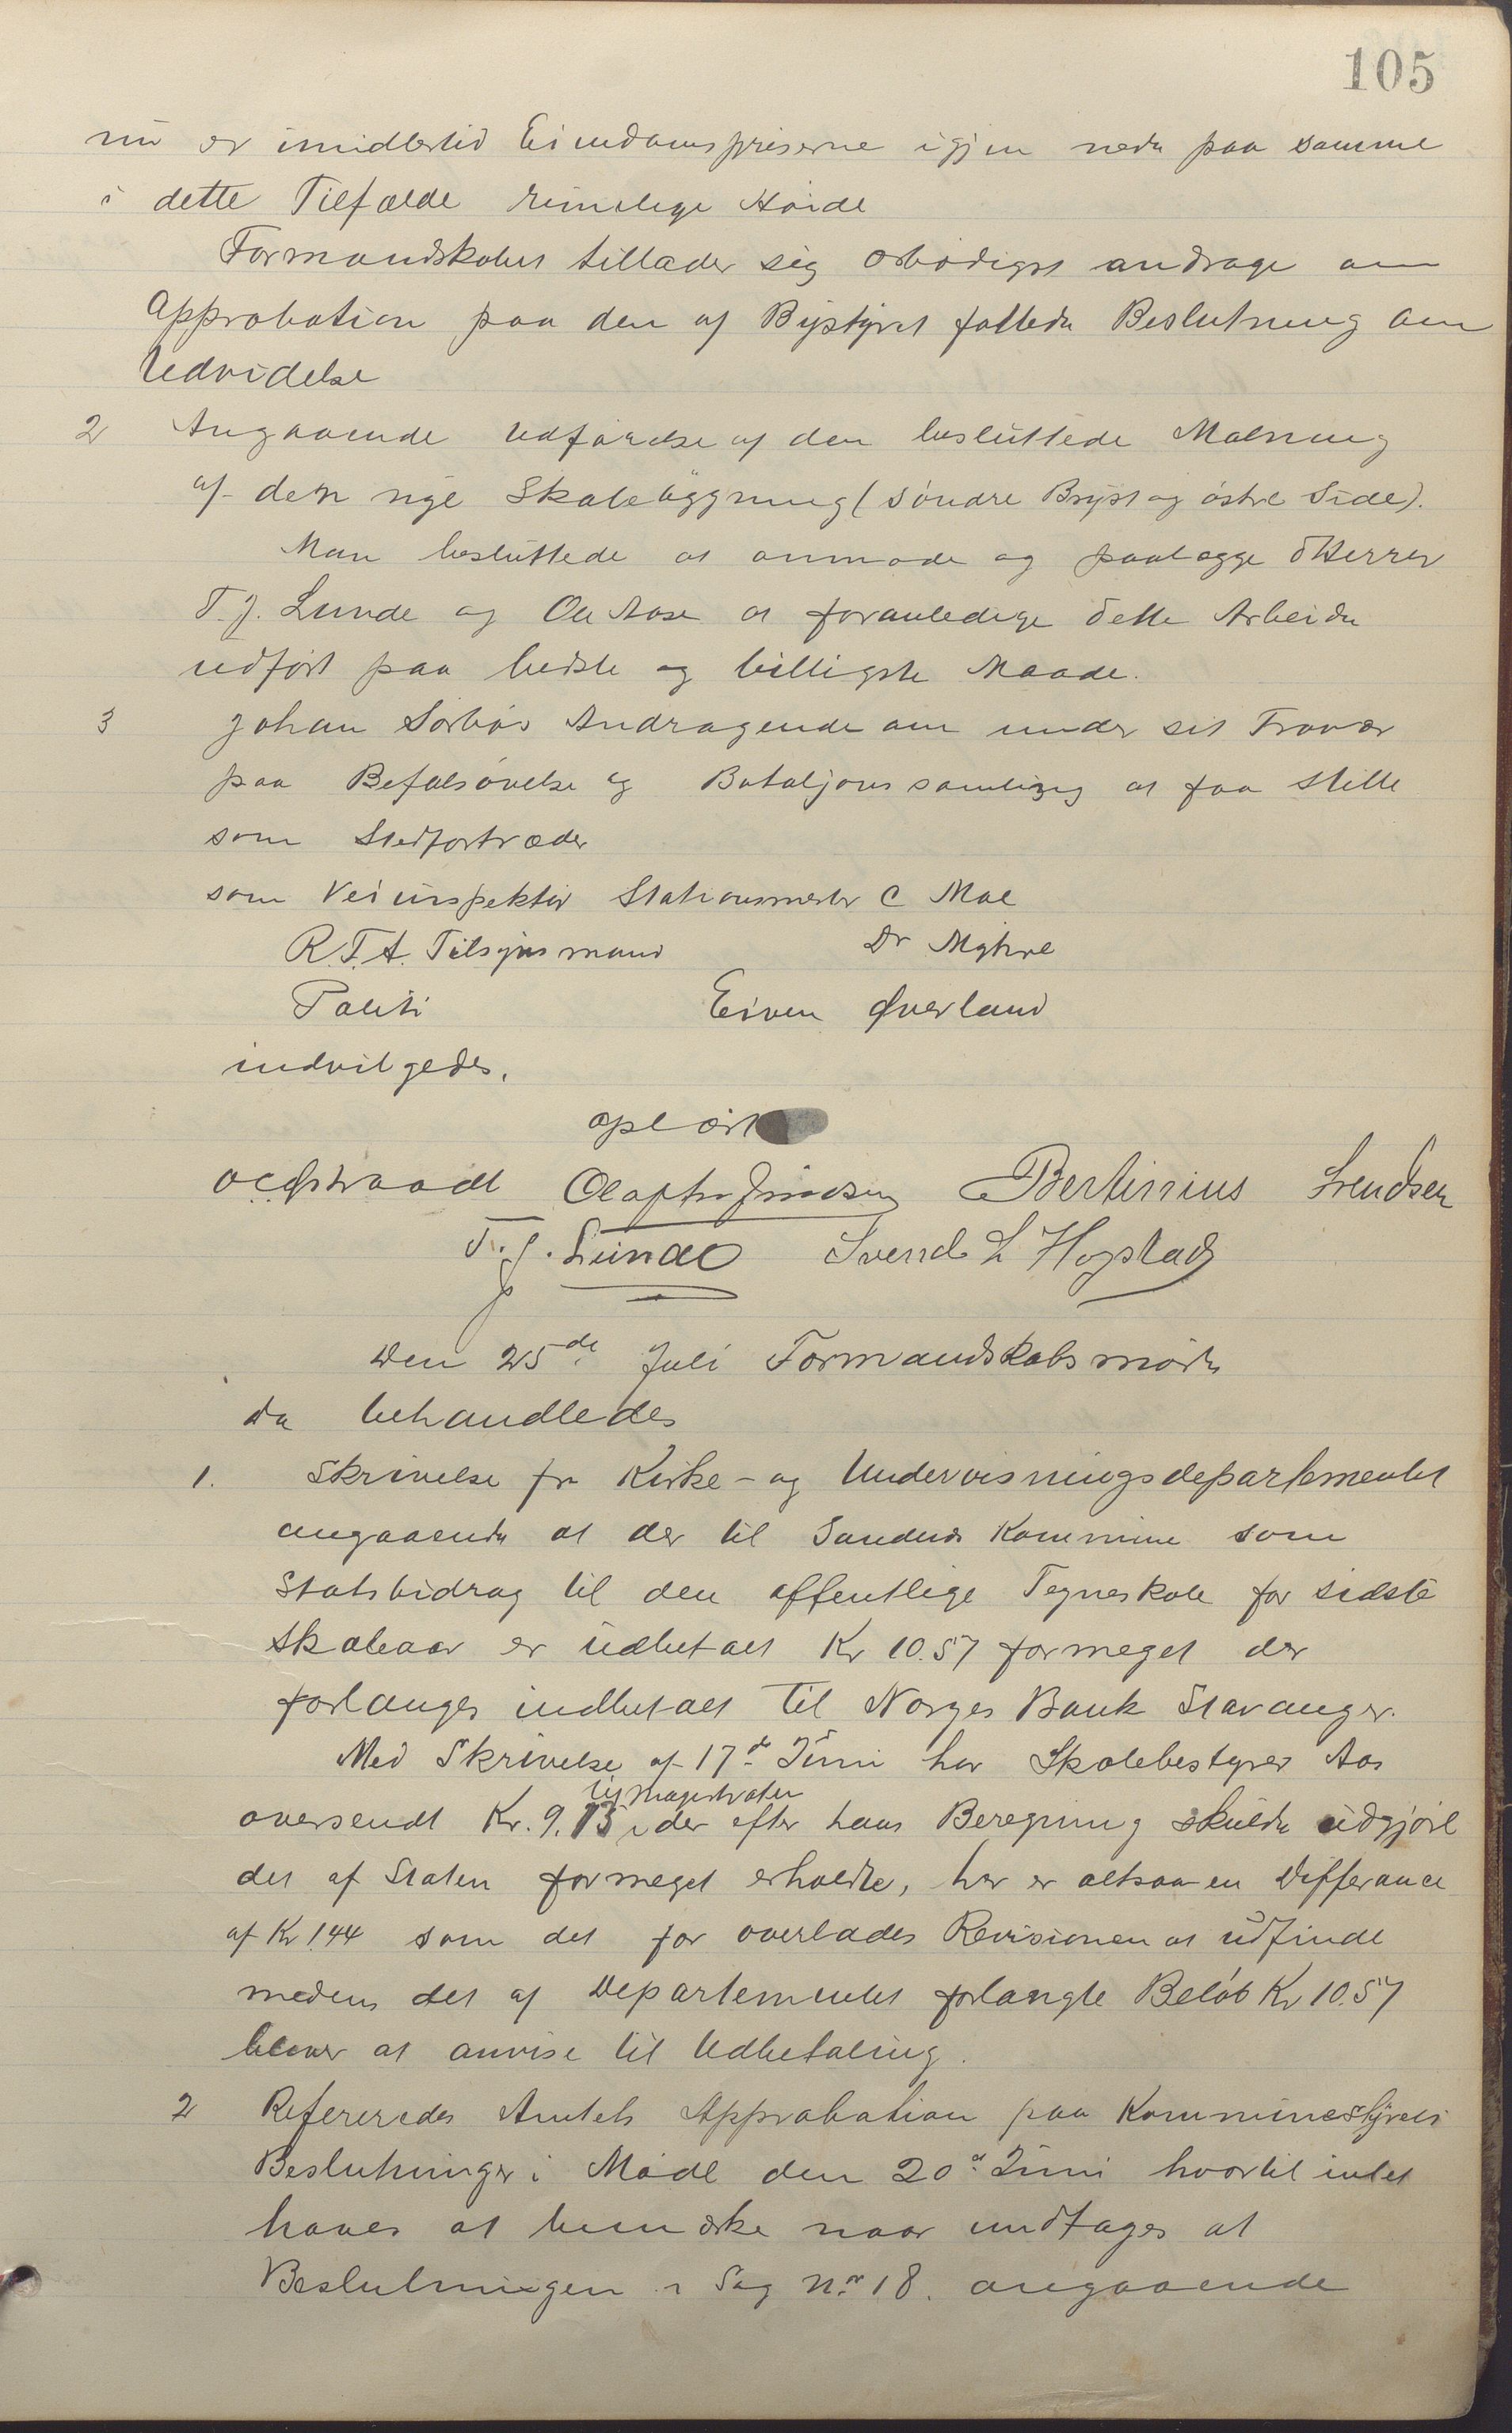 105
nu er imidlertid Eiendomspriserne igjen nede paa samme
i dette Tilfælde rimelige Høide
Formandskabet tillader sig ærbødigst andrage om
Approbation paa den af Bystyret fattede Beslutning om
Udvidelse
2 Angaaende Udførelse af den besluttede Malning
af den nye Skolebygning (søndre Bryst og østre Side).
Man besluttede at anmode og paalægge dHerrer
T. J. Lunde og Ole Aase at foranledige dette Arbeide
udført paa bedste og billigste Maade.
3 Johan Sørbøs Andragende om under sit Fravær
paa Befalsøvelse og Bataljonssamling at faa stille
som Stedfortræder
som Veiinspektør Stationsmester C Moe
R.T.A. Tilsynsmand Dr Myhre
Politi Eiven Øverland
indvilgedes.
oplæst
Bertinius Svendsen
T. J. Lunde Svend L Hogstad
Den 25de Juli Formandskabsmøde
da behandledes
1. Skrivelse fra Kirke- og Undervisningsdepartementet
angaaende at der til Sandeids Kommune som
Statsbidrag til den offentlige Tegneskole for sidste
Skoleaar er udbetalt Kr 10.57 formeget der
forlanges indbetalt til Norges Bank Stavanger.
Med Skrivelse af 17de Juni har Skolebestyrer Aas
til Magistraten
oversendt Kr. 9.13 der efter hans Beregning skulde udgjøre
det af Staten formeget erholdte, her er altsaa en Differance
af Kr 1.44 som det før overlades Revisionen at udfinde
medens det af Departementet forlangte Beløb Kr 10.57
bliver at anvise til Udbetaling.
2 Refereredes Amtets Approbation paa Kommunestyrets
Beslutninger i Møde den 20de Juni hvortil intet
haves at bemærke naar undtages at
Beslutningen i Sag No 18. angaaende